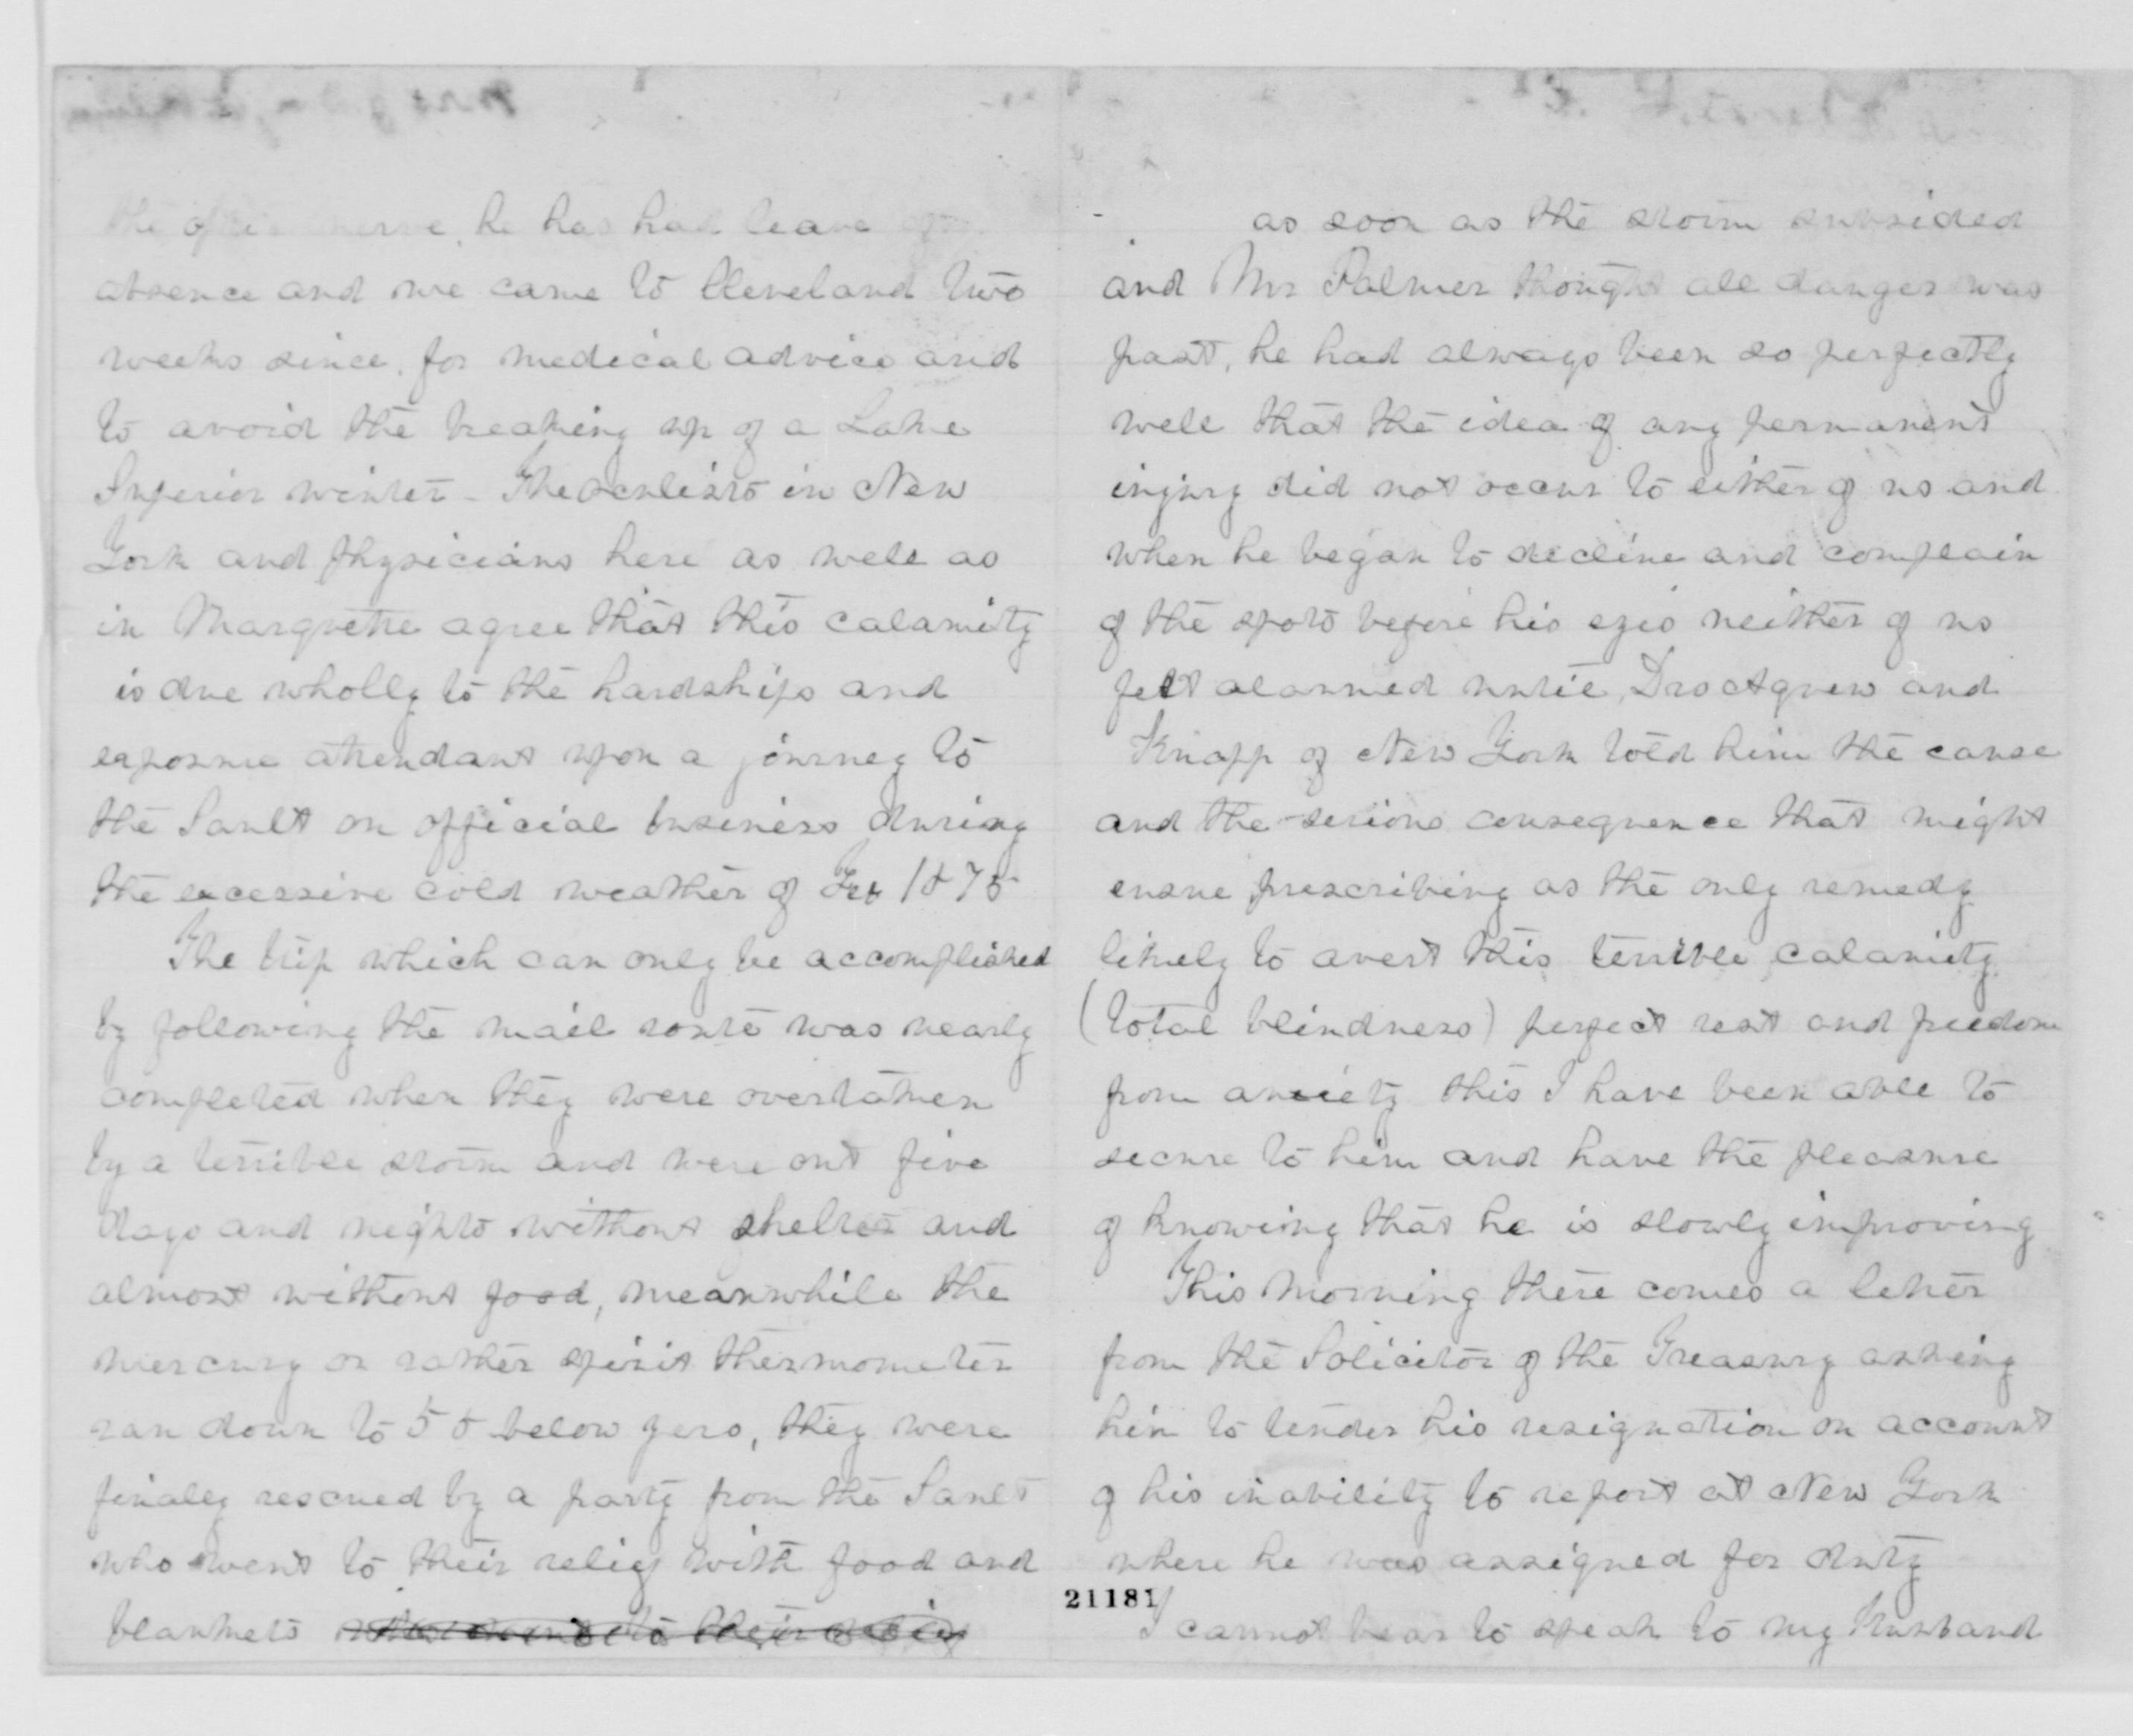 the optic nerve, he has had leave of
absence and we came to Cleveland two
weeks since, for medical advice and
to avoid the breaking up of a Lake
Superior winter - The oculists in New
York and physicians here as well as
in Marquette agree that this calamity
is due wholly to the hardships and
exposure attendant upon a journey to
the Sault on official business during
the excessive cold weather of Feb 1875
The trip which can only be accomplished
by following the mail route was nearly
completed when they were overtaken
by a terrible storm and were out five
days and nights without shelter and
almost without food, meanwhile the
mercury or rather spirit thermometer
ran down to 50 below zero, they were
finally rescued by a party from the Sault
who went to their relief with food and
blankets who went to their relief
as soon as the storm subsided
and Mr Palmer thought all danger was
past, he had always been so perfectly
well that the idea of any permanent
injury did not occur to either of us and
when he began to decline and complain
of the spots before his eyes neither of us
felt alarmed until Drs Agnew and
Knapp of New York told him the cause
and the serious consequence that might
ensue prescribing as the only remedy
likely to avert this terrible calamity
(total blindness) perfect rest and freedom
from anxiety this I have been able to
secure to him and have the pleasure
of knowing that he is slowly improving
This morning there comes a letter
from the Solicitor of the Treasury asking
him to tender his resignation on account
of his inability to report at New York
where he was assigned for duty
21181
I cannot bear to speak to my husband